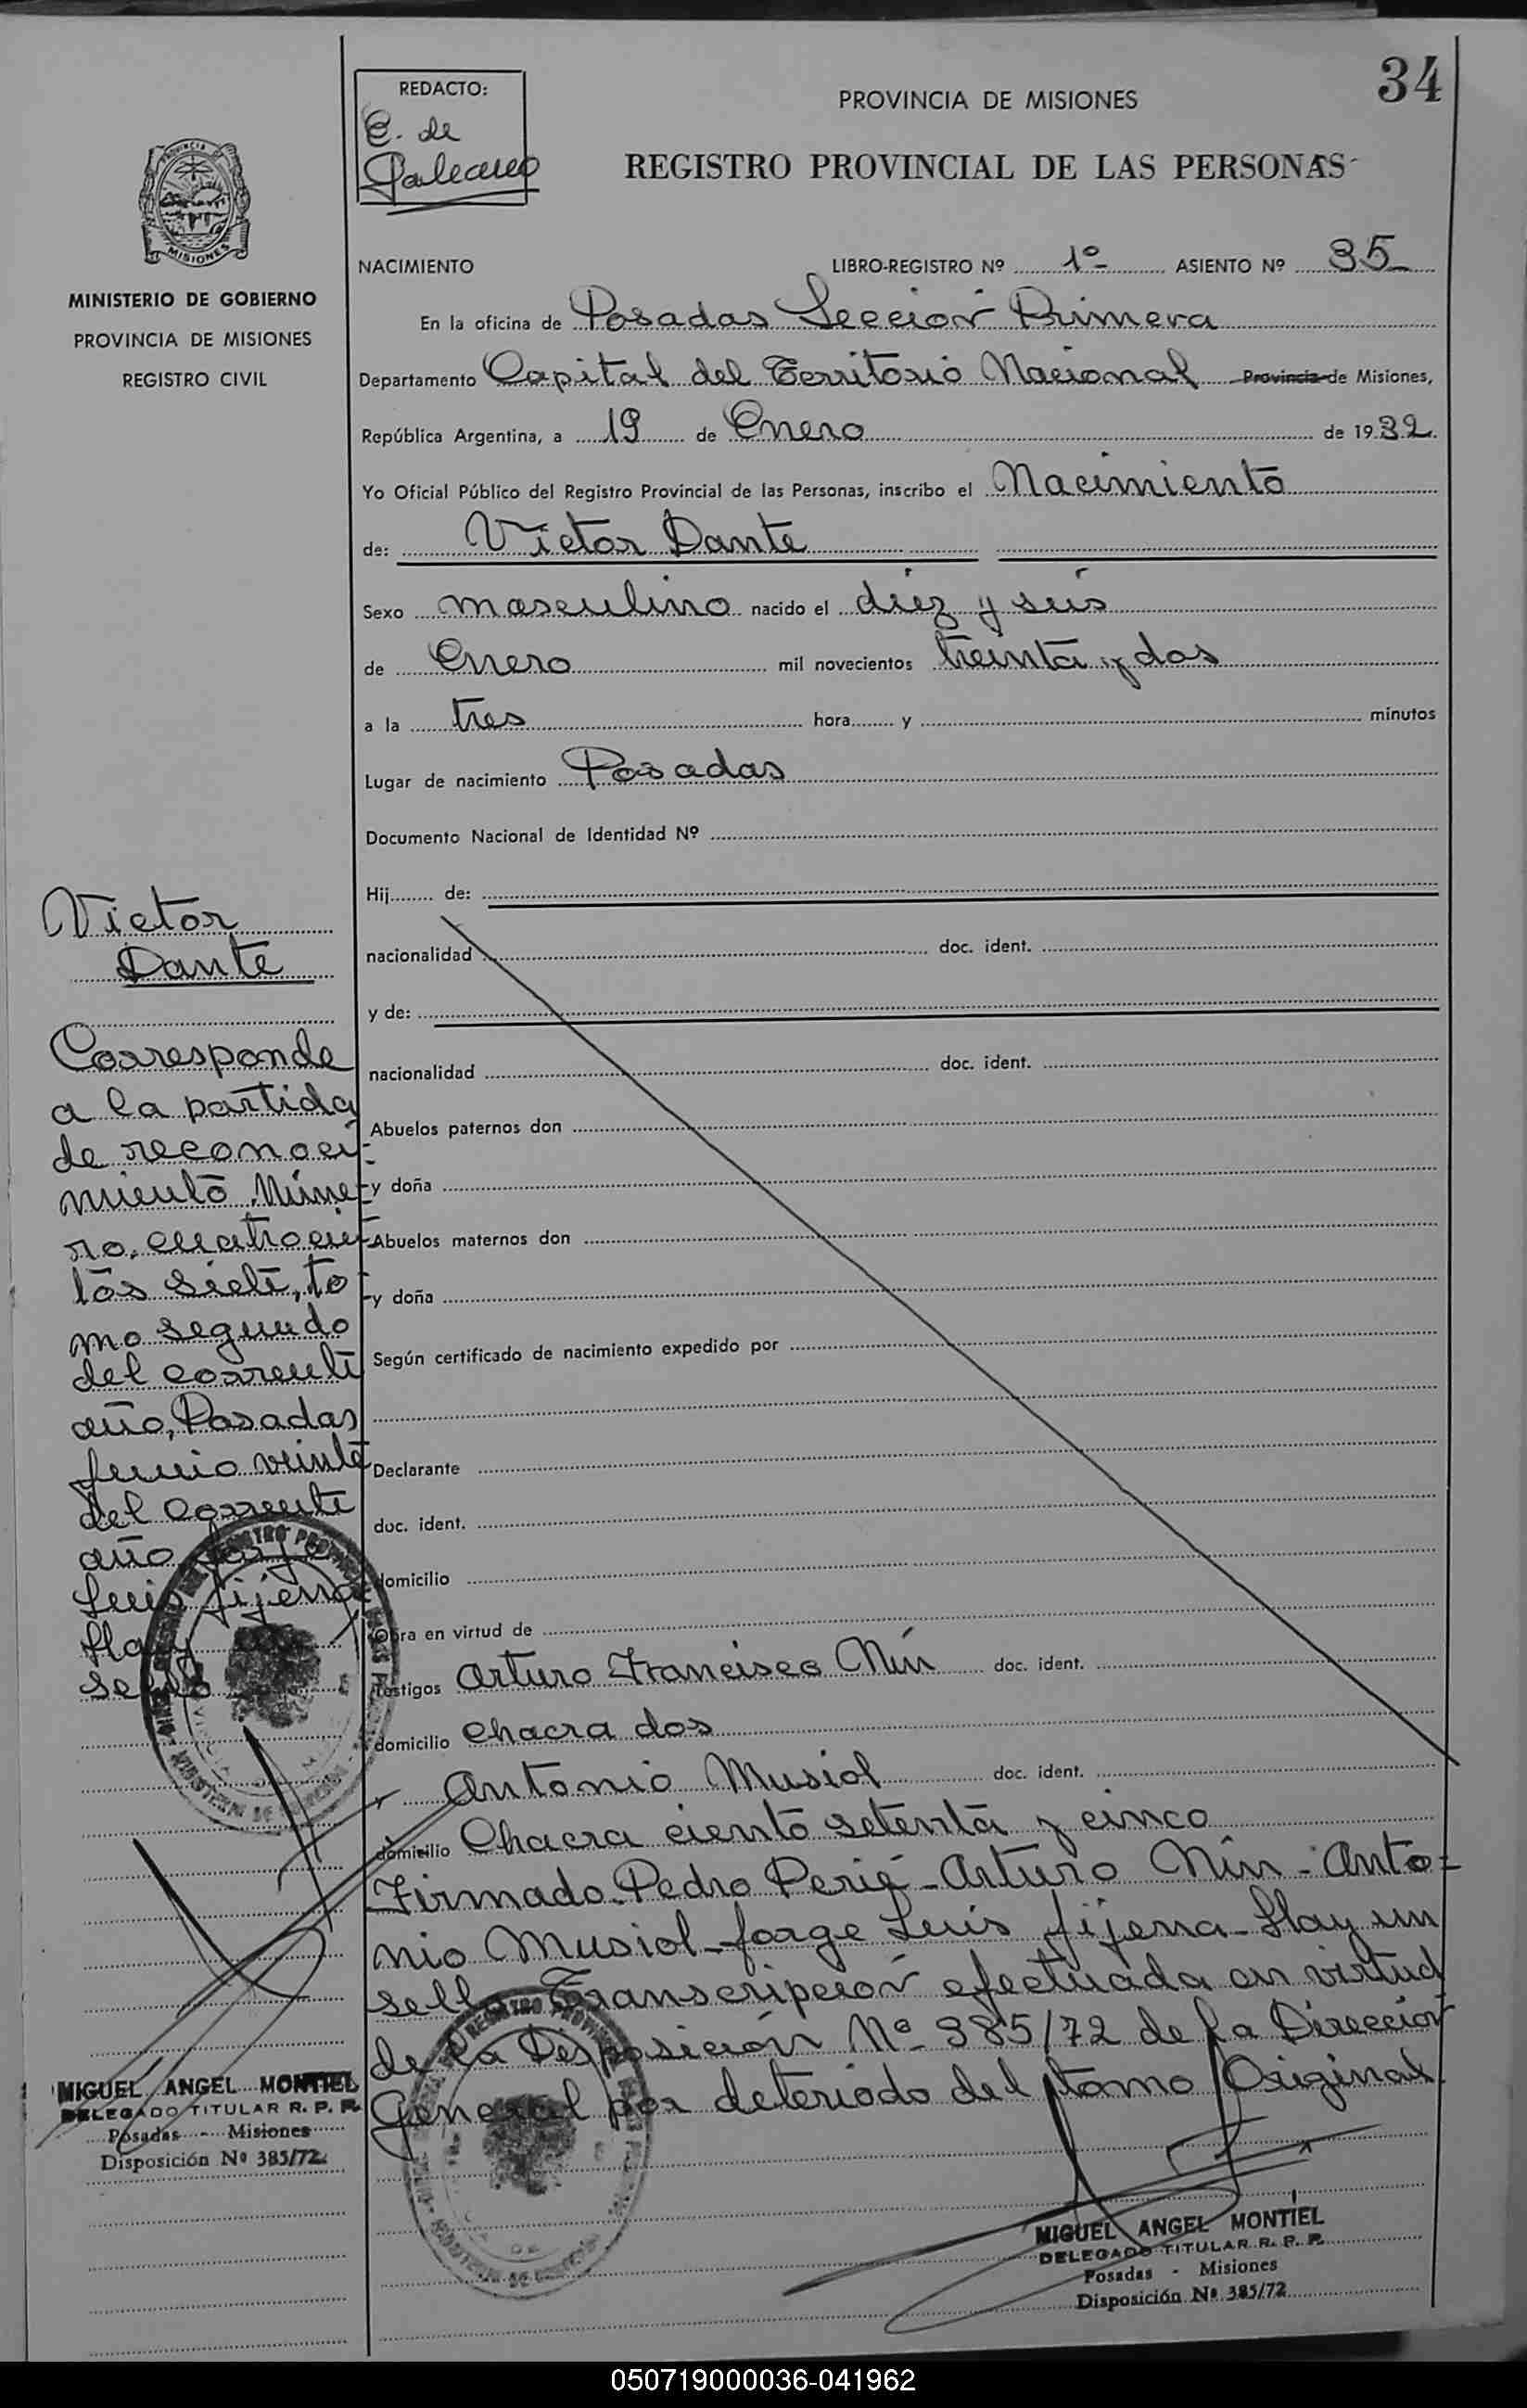 34
REDACTO:
E. de
Galeano
PROVINCIA DE MISIONES
REGISTRO PROVINCIAL DE LAS PERSONAS
PROVINCIA DE
MISIONES
MINISTERIO DE GOBIERNO
PROVINCIA DE MISIONES
REGISTRO CIVIL
NACIMIENTO LIBRO-REGISTRO Nº 1º ASIENTO Nº 35
En la oficina de Posadas Sección Primera
Departamento Capital del Territorio Nacional Provincia de Misiones,
República Argentina, a 19 de Enero de 1932.
Yo Oficial Público del Registro Provincial de las Personas, inscribo el Nacimiento
de: Victor Dante
Sexo masculino nacido el diez y seis
de Enero mil novecientos treinta y dos
a la tres hora y minutos
Lugar de nacimiento Posadas
Documento Nacional de Identidad Nº
Hij de:
nacionalidad doc. ident.
y de:
nacionalidad doc. ident.
Abuelos paternos don
y doña
Abuelos maternos don
y doña
Según certificado de nacimiento expedido por
Declarante
doc. ident.
domicilio
Obra en virtud de
Testigos Arturo Francisco Nin doc. ident.
domicilio Chacra dos
y Antonio Musiol doc. ident.
domicilio Chacra ciento setenta y cinco
Firmado. Pedro Perié - Arturo Nin - Anto=
nio Musiol - Jorge Luis Jijena - Hay un
sello Transcripción efectuada en virtud
de la Disposición Nº 385/72 de la Dirección
General por deteriodo del tomo Original.
MIGUEL ANGEL MONTIEL
DELEGADO TITULAR R. P. P.
Posadas - Misiones
Disposición Nº 385/72
Victor
Dante
Corresponde
a la partida
de reconoci-
miento Núme-
ro cuatrocien-
tos siete, to-
mo segundo
del corriente
año, Posadas
Junio veinte
del corriente
año Jorge
Luis Jijena
Hay
sello
MIGUEL ANGEL MONTIEL
DELEGADO TITULAR R. P. P.
Posadas - Misiones
Disposición Nº 385/72
050719000036-041962